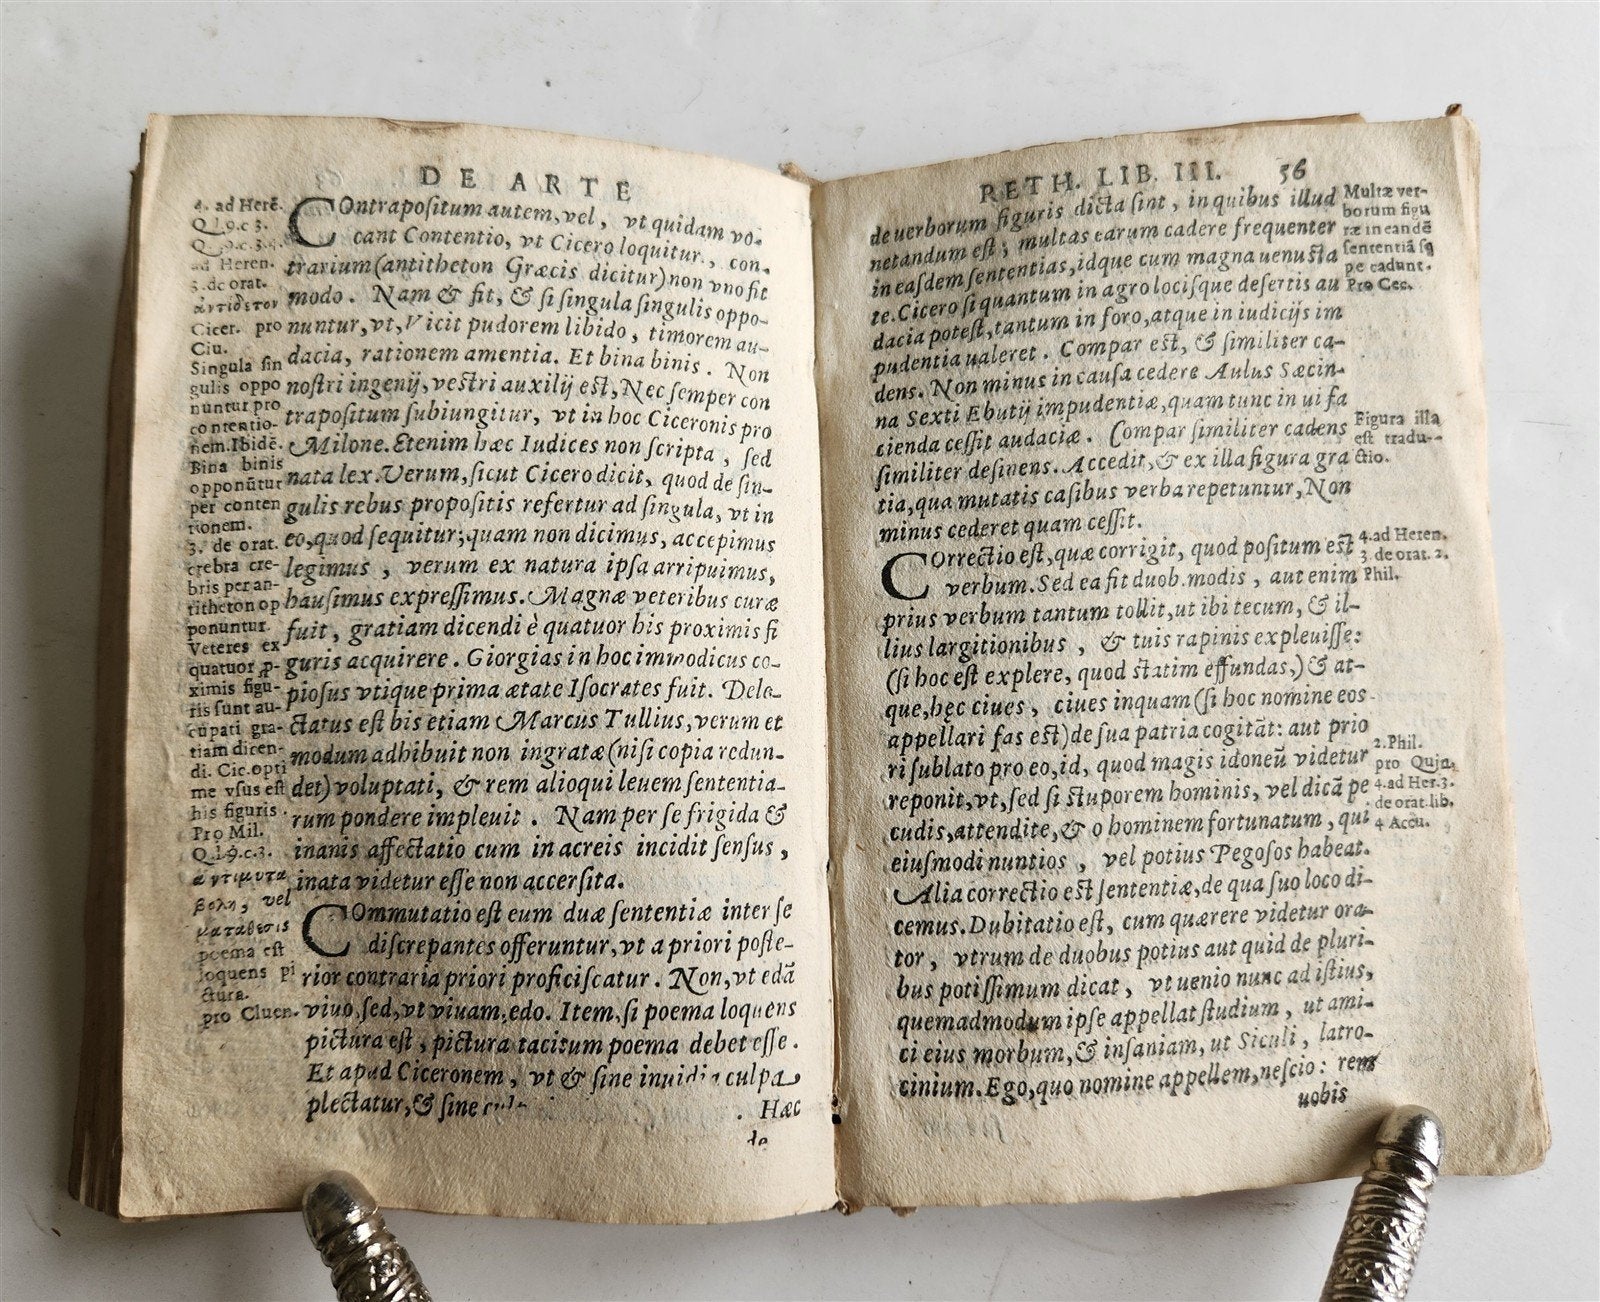 DE ARTE
4. ad Herē.
Q.l.9.c 3.
ad Heren.
3. de orat.
ἀντίθετον
Cicer. pro
Clu.
Singula sin
gulis oppo
nuntur pro
contentio-
nem. Ibidē.
Bina binis
opponūtur
per conten
tionem.
3. de orat.
crebra cre-
bris per an-
titheton op
ponuntur.
Veteres ex
quatuor
ximis figu-
ris sunt au-
cupati gra-
tiam dicen-
di. Cic. opti
me vsus est
his figuris.
Pro Mil.
Q.l.9.c.3.
βολη, vel
poema est
loquens pi
ctura.
pro Cluen.
COntrapositum autem, vel, vt quidam vo-
cant Contentio, vt Cicero loquitur, con-
trarium (antitheton Græcis dicitur) non vno fit
modo. Nam & fit, & si singula singulis oppo-
nuntur, vt, Vicit pudorem libido, timorem au-
dacia, rationem amentia. Et bina binis. Non
nostri ingenij, vestri auxilij est, Nec semper con
trapositum subiungitur, vt in hoc Ciceronis pro
Milone. Etenim hæc Iudices non scripta, sed
nata lex. Verum, sicut Cicero dicit, quod de sin-
gulis rebus propositis refertur ad singula, vt in
eo, quod sequitur; quam non dicimus, accepimus
legimus, verum ex natura ipsa arripuimus,
hausimus expressimus. Magnæ veteribus curæ
fuit, gratiam dicendi è quatuor his proximis fi
guris acquirere. Giorgias in hoc immodicus co-
piosus vtique prima ætate Isocrates fuit. Dele-
ctatus est his etiam Marcus Tullius, verum et
modum adhibuit non ingratæ (nisi copia redun-
det) voluptati, & rem alioqui leuem sententia-
rum pondere impleuit. Nam per se frigida &
inanis affectatio cum in acreis incidit sensus,
inata videtur esse non accersita.
COmmutatio est eum duæ sententiæ inter se
discrepantes offeruntur, vt a priori poste-
rior contraria priori proficiscatur. Non, vt edā
viuo, sed, vt viuam, edo. Item, si poema loquens
pictura est, pictura tacitum poema debet esse.
Et apud Ciceronem, vt & sine inuidia culpa
plectatur, & sine
Hæc
de
RETH. LIB. III. 56
de uerborum figuris dicta sint, in quibus illud
netandum est; multas earum cadere frequenter
in easdem sententias, idque cum magna uenusta
te. Cicero si quantum in agro locisque desertis au
dacia potest, tantum in foro, atque in iudicijs im
pudentia ualeret. Compar est, & similiter ca-
dens. Non minus in causa cedere Aulus Sæcin-
na Sexti Ebutij impudentiæ, quam tunc in ui fa
cienda cessit audaciæ. Compar similiter cadens
similiter desinens. Accedit, & ex illa figura gra
tia, qua mutatis casibus verba repetuntur, Non
minus cederet quam cessit.
COrrectio est, quæ corrigit, quod positum est
verbum. Sed ea fit duob. modis, aut enim
prius verbum tantum tollit, ut ibi tecum, & il-
lius largitionibus, & tuis rapinis expleuisse:
(si hoc est explere, quod statim effundas,) & at-
que, hęc ciues, ciues inquam (si hoc nomine eos
appellari fas est) de sua patria cogitāt: aut prio
ri sublato pro eo, id, quod magis idoneū videtur
reponit, vt, sed si stuporem hominis, vel dicā pe
cudis, attendite, & o hominem fortunatum, qui
eiusmodi nuntios, vel potius Pegosos habeat.
Alia correctio est sententiæ, de qua suo loco di-
cemus. Dubitatio est, cum quærere videtur ora-
tor, vtrum de duobus potius aut quid de pluri-
bus potissimum dicat, vt uenio nunc ad istius,
quemadmodum ipse appellat studium, ut ami-
ci eius morbum, & insaniam, ut Siculi, latro-
cinium. Ego, quo nomine appellem, nescio: rem
uobis
Multæ ver-
borum figu
ræ in eandē
sententiā sę
pe cadunt.
Pro Cec.
Figura illa
est tradu-
ctio.
4. ad Heren.
3. de orat. 2.
Phil.
2. Phil.
pro Quin.
4. ad Her. 3.
de orat. lib.
4 Accu.